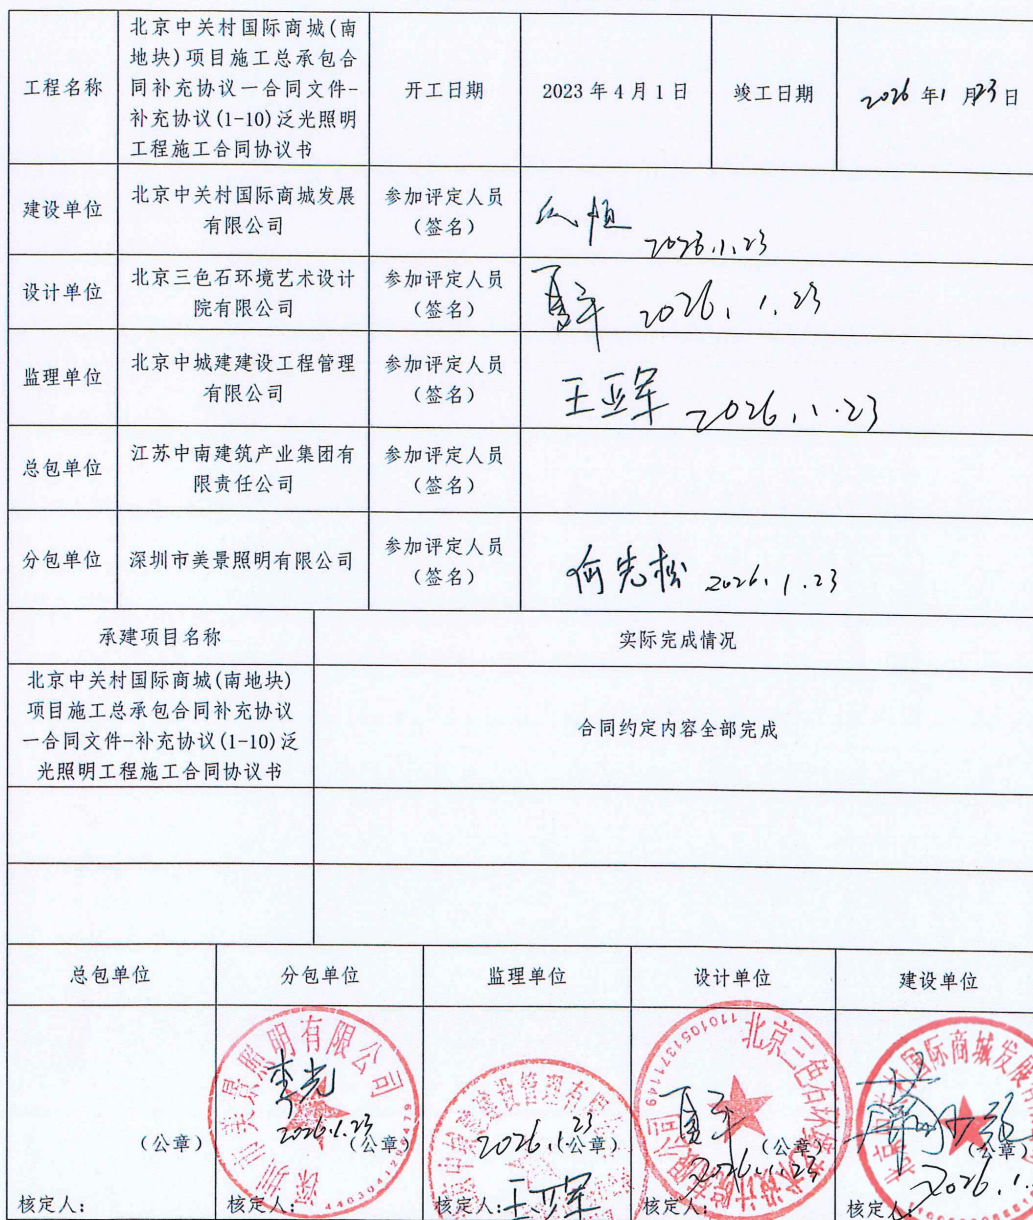 工程名称
北京中关村国际商城(南
地块)项目施工总承包合
同补充协议一合同文件-
补充协议(1-10)泛光照明
工程施工合同协议书
开工日期
2023年4月1日
竣工日期
2026年1月23日
建设单位
北京中关村国际商城发展
有限公司
参加评定人员
(签名)
2026.1.23
设计单位
北京三色石环境艺术设计
院有限公司
参加评定人员
(签名)
2026.1.23
监理单位
北京中城建建设工程管理
有限公司
参加评定人员
(签名)
王亚军 2026.1.23
总包单位
江苏中南建筑产业集团有
限责任公司
参加评定人员
(签名)
分包单位
深圳市美景照明有限公司
参加评定人员
(签名)
何先松 2026.1.23
承建项目名称
实际完成情况
北京中关村国际商城(南地块)
项目施工总承包合同补充协议
一合同文件-补充协议(1-10)泛
光照明工程施工合同协议书
合同约定内容全部完成
总包单位
分包单位
监理单位
设计单位
建设单位
(公章)
核定人:
深圳市美景照明有限公司
李光
2026.1.23
(公章)
核定人:
2026.1.23
(公章)
核定人:王亚军
1101051371149
(公章)
2026.1.23
核定人:
国际商城发展
(公章)
2026.1.
核定人: